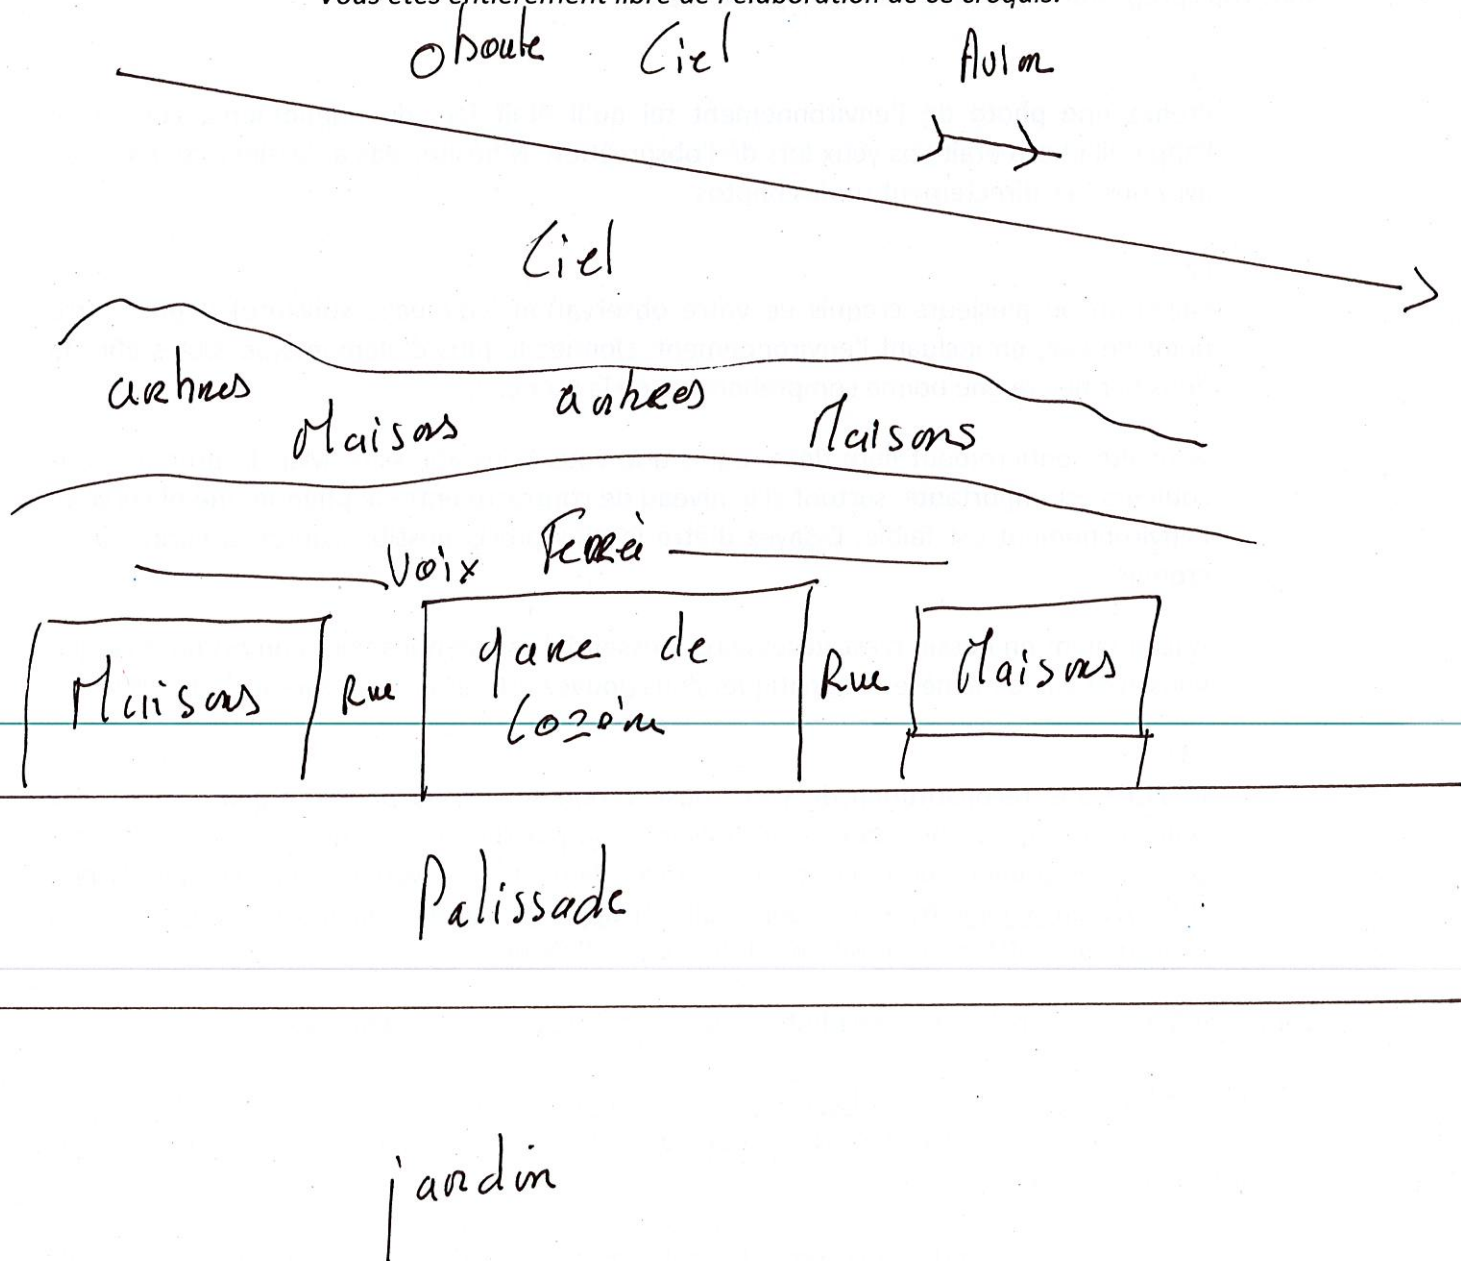 Vous êtes entièrement libre de l'élaboration de ce croquis.
boule Ciel Avion
Ciel
arbres arbres
Maisons Maisons
Voix Ferrée
Maisons Rue gare de Rue Maisons
Palissade
jardin